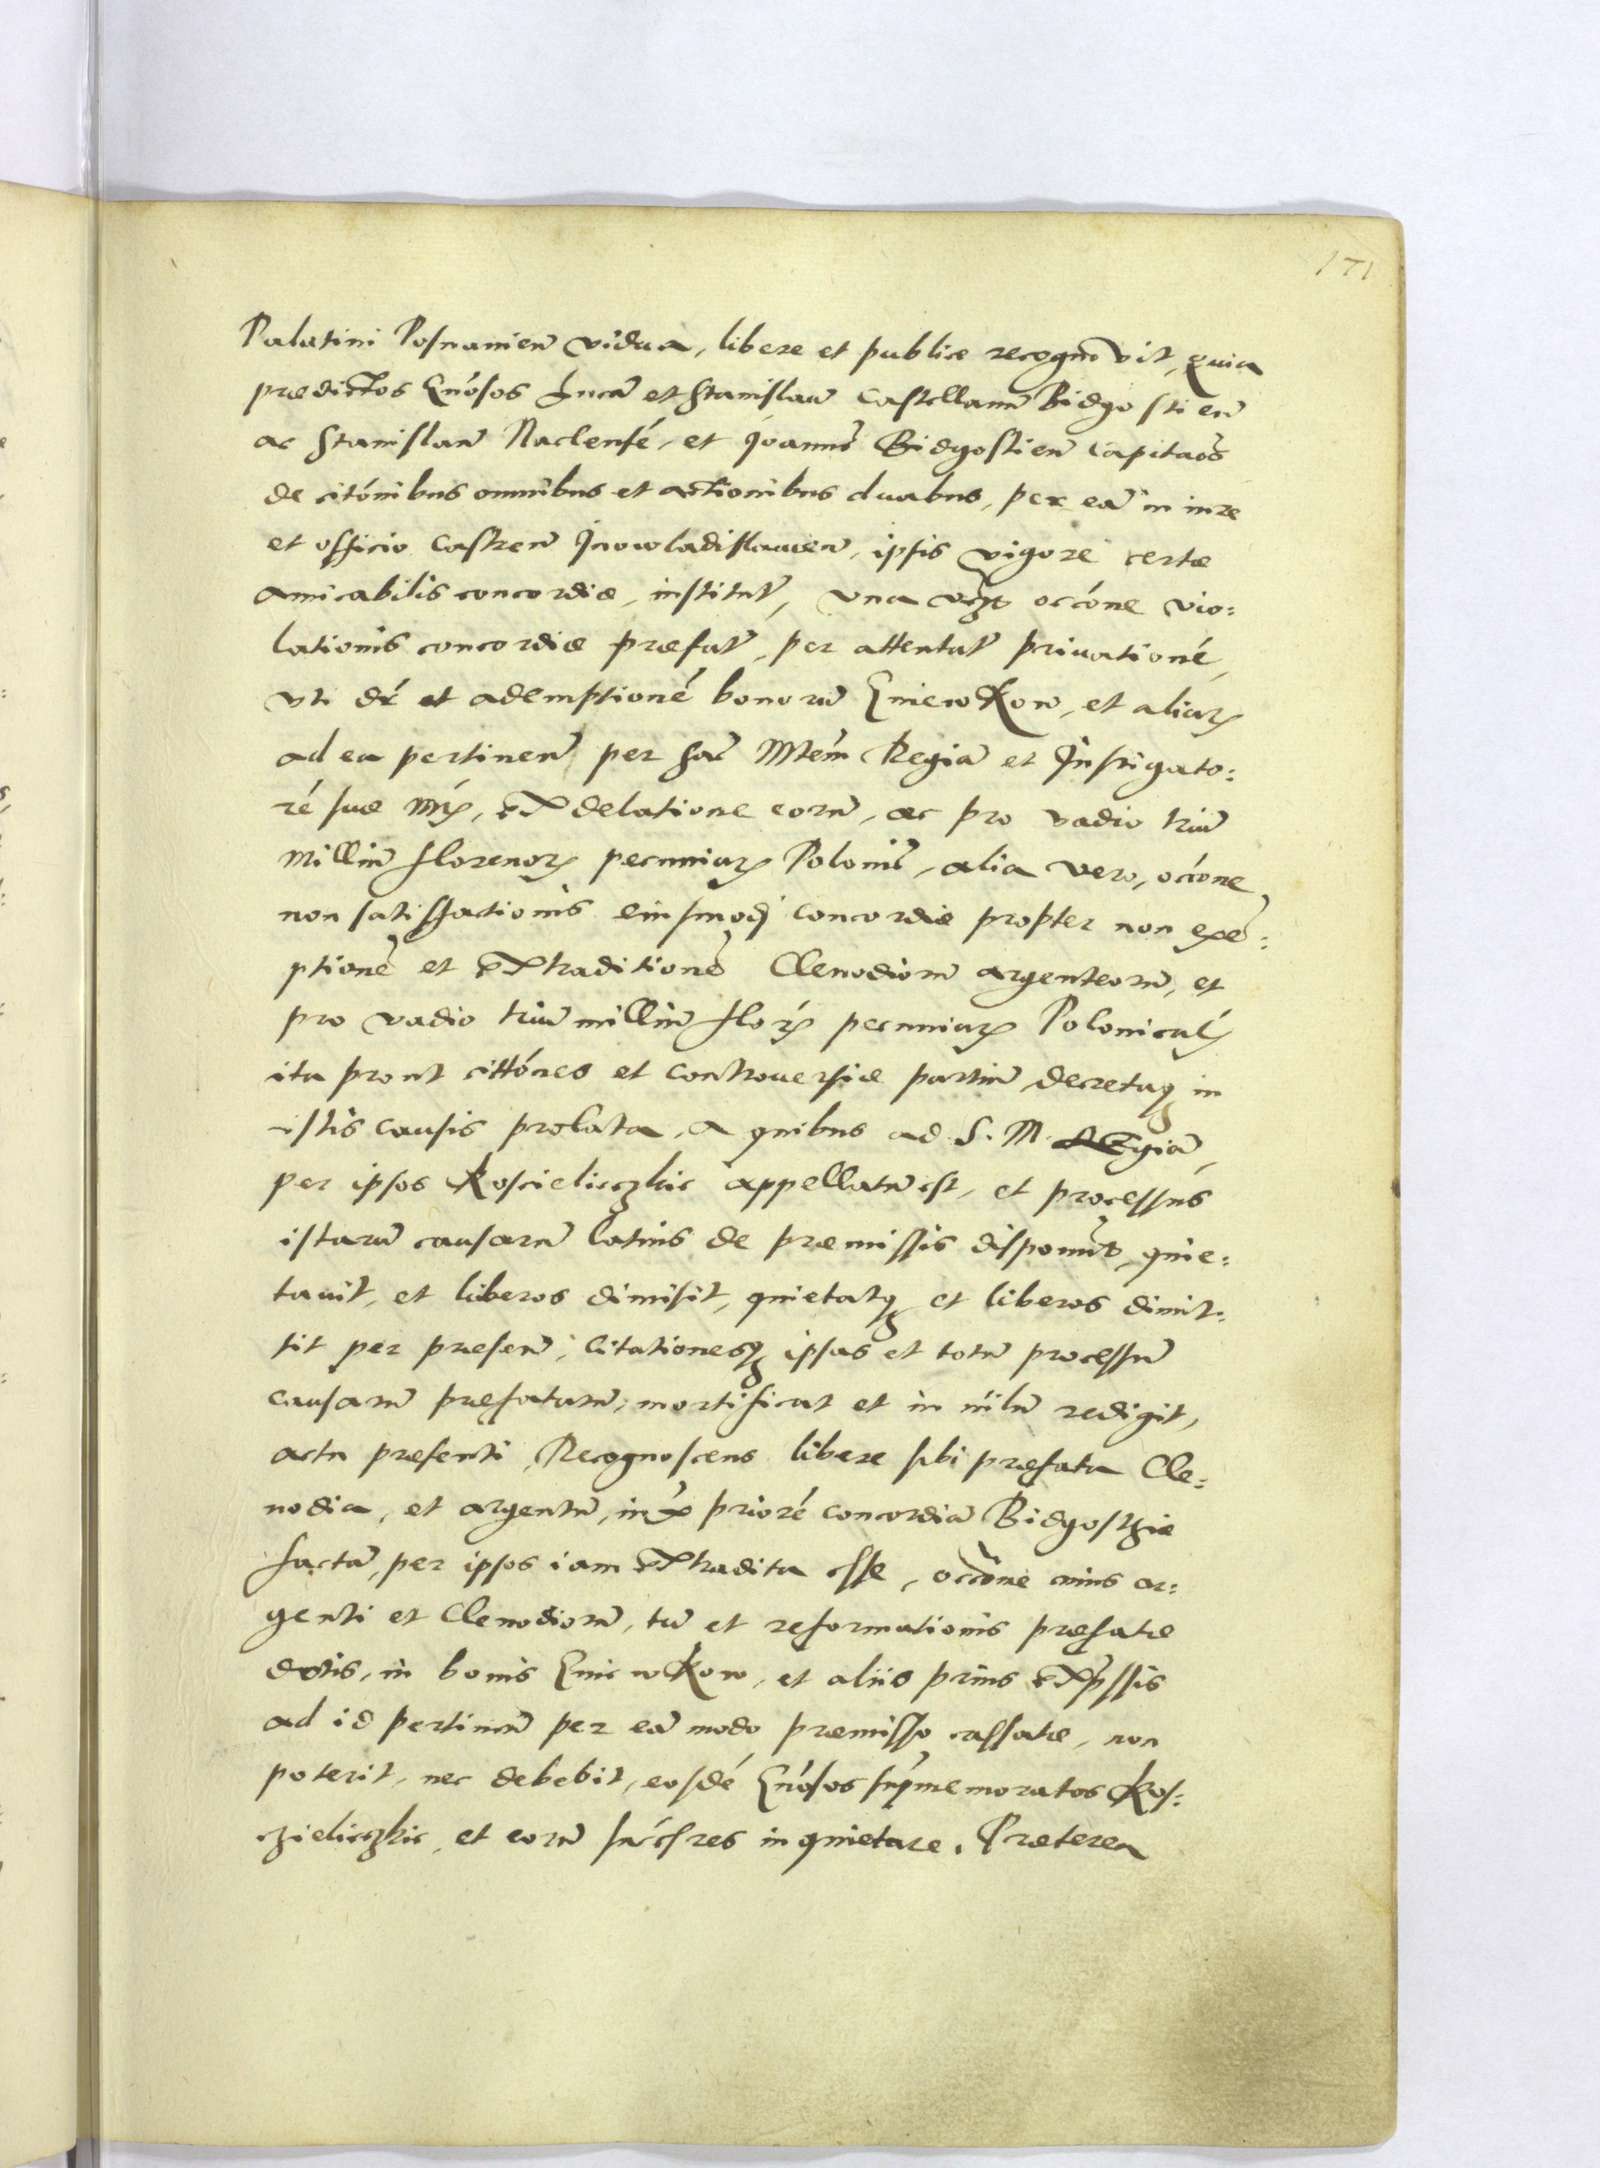 171
Palatini Posnanien vidua, libere et publice recognovit, quia
prædictos Gnosos Lucã et Stanislaũ Castellanũ Bidgostien
ac Stanislaũ Naclensé, et Joannẽ Bidgostien Capitaõs
de citónibus omnibus et actionibus duabus, per eã in iure
et officio Castren Jnowladislauien, ipsis vigore certæ
amicabilis concordiæ, institut, vna occóne vio:
lationis concordiæ præfat, per attentat priuationé,
vti dr et ademptioné bonorũ Gniewkow, et aliarꝝ
ad ea pertinen per Sac Mtem Regiã et Jnstigato:
ré suæ Mtis, ex delatione eorũ, ac pro vadio triũ
milliũ florenorꝝ pecuniarꝝ Poloniẽ, alia vero, occóne
non satisfactionis eiusmodj concordiæ propter non exẽ:
ptionẽ et extraditionẽ Clenodiorũ argenteorũ, et
pro vadio triũ milliũ florꝝ pecuniarꝝ Polonicalꝝ
ita prout cittónes et controuersiæ partiũ decretaqꝫ in
istis causis prolata, a quibus ad S. M. Regiã,
per ipsos Koscieliczkie appellatũ est, et processus
istarũ causarũ latius de præmissis disponunt, quie:
tauit, et liberos dimisit, quietatqꝫ et liberos dimit:
tit per præsen, Citationesqꝫ ipsas et totũ processũ
causarũ præfatarũ, mortificat et in niilũ redigit,
actu præsenti, Recognoscens libere sibi præfata Cle:
nodia, et argentũ, iux prioré concordiã Bidgosthiæ
factã, per ipsos iam extradita esse, occõne cuius ar:
genti et Clenodiorũ, tũ et reformationis præfatæ
dotis, in bonis Gniewkow, et aliis prius expssis
ad id pertinen per eã modo præmisso cassatæ, non
poterit, nec debebit, eosdé Gnosos supmemoratos Kos:
czieliczkie, et eorũ succsres inquietare. Præterea